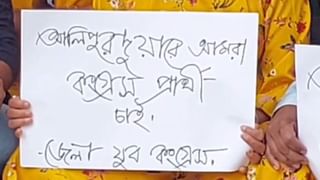 আলিপুরদুয়ারে আমরা
কংগ্রেস প্রার্থী
চাই.
- জেলা যুব কংগ্রেস.